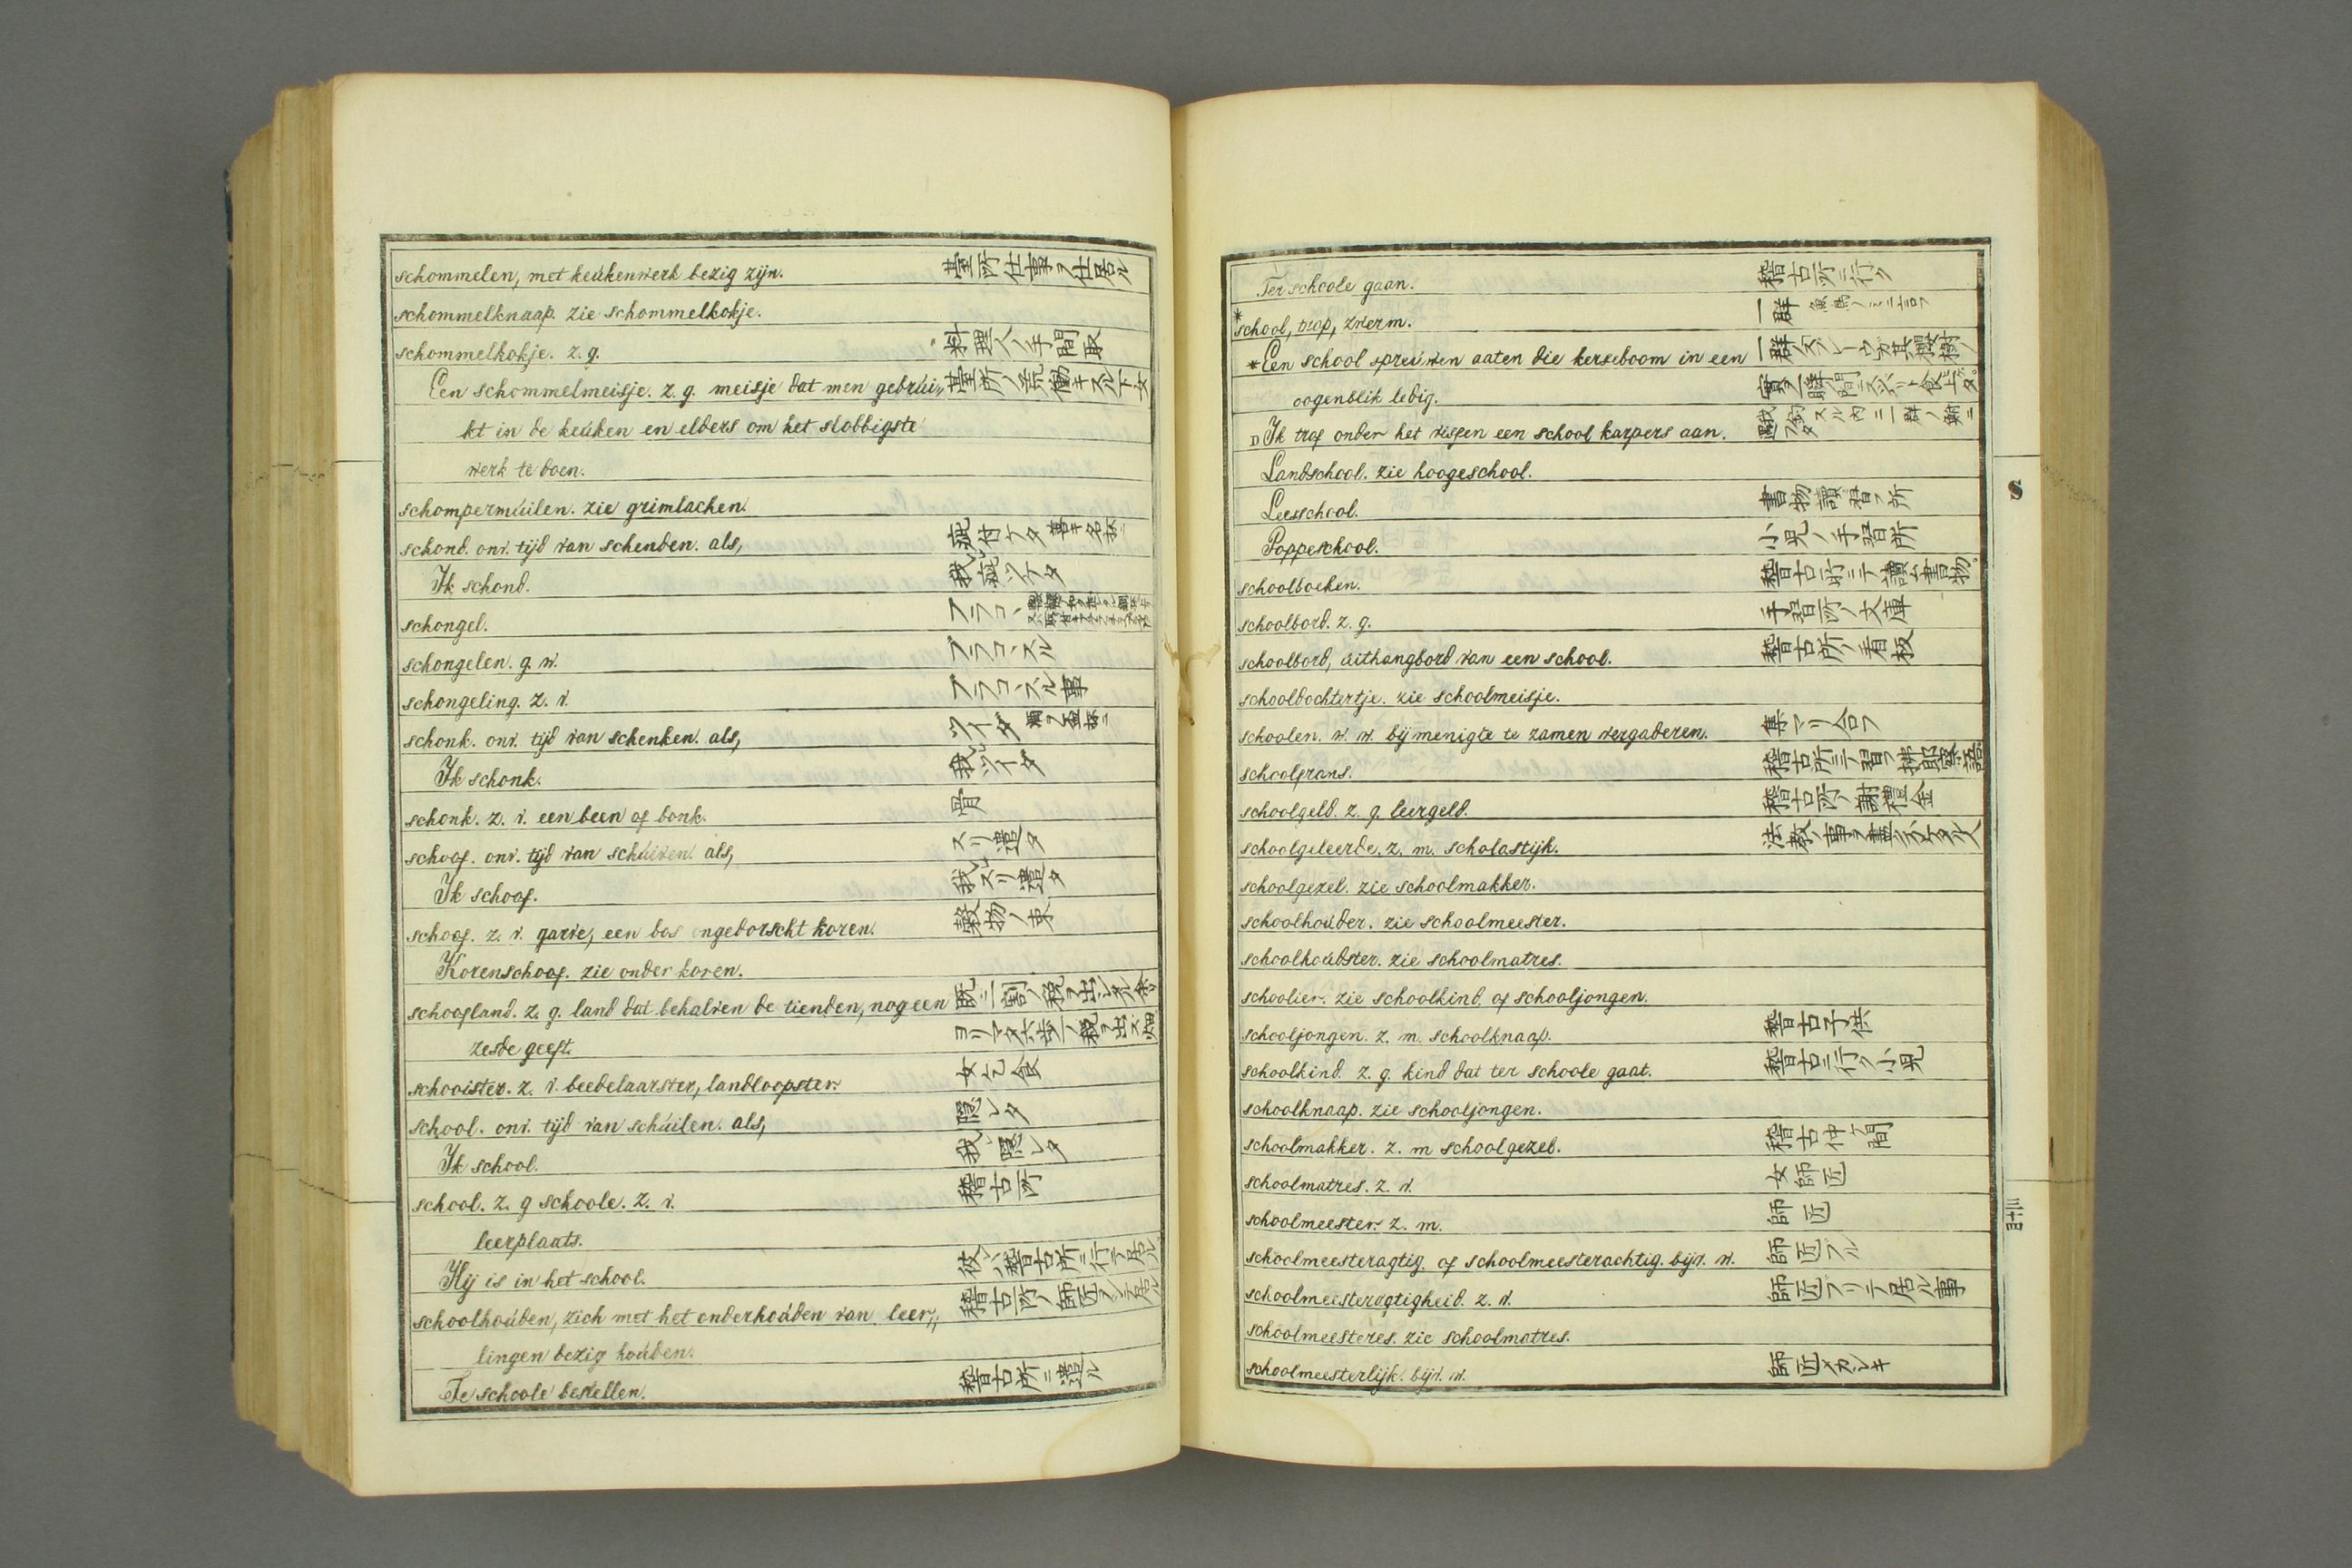 schommelen, met keúkenwerk bezig zijn. 臺所仕事ヲ仕居ル
schommelknaap. zie schommelkokje.
schommelkokje. z. g. 料理人ノ手間取
Een schommelmeisje. z. g. meisje dat men gebrúi„ 臺所ノ荒働キスル下女
kt in de keúken en elders om het slobbigste
werk te doen.
schompermúilen. zie grimlachen.
schond. onv. tijd van schenden. als, 疵付ケタ 善キ名抔ニ
Ik schond. 我レ疵ツケタ
schongel. フラコヽ
schongelen. g. w. フラコヽスル
schongeling. z. v. フラコヽスル事
schonk. onv. tijd van schenken. als, ツイダ 酒ヲ盃抔ニ
Ik schonk. 我レツイダ
schonk. z. v. een been of bonk. 骨
schoof. onv. tijd van schúiven. als, スリ遣タ
Ik schoof. 我レスリ遣タ
schoof. z. v. garve, een bos ongedorscht koren. 穀物ノ束
Korenschoof. zie onder koren.
schoofland. z. g. land dat behalven de tienden, nog een 既ニ一割ノ税ヲ出シタル
zesde geeft. ヨリ 税ヲ出ス畑
schooister. z. v. beedelaarster, landloopster. 女乞食
school. onv. tijd van schúilen. als, 隠レタ
Ik school. 我レ隠レタ
school. z. g schoole. z. v. 稽古所
leerplaats.
Hij is in het school. 彼レハ稽古所ニ行テ居ル
schoolhoúden, zich met het onderhoúden van leer„ 稽古所ノ師匠ヲシテ居ル
lingen bezig hoúden.
Te schoole bestellen. 稽古所ニ遣ル
Ter schoole gaan. 稽古所ニ行ク
* school, trop, zwerm. 一群 魚鳥ノミニ言フ
* Een school spreúwen aaten die kerseboom in een 一群ノスプレーウガ其櫻樹ノ
oogenblik ledig. 實ヲ一瞬ノ間ニ 食
D Ik trof onder het vissen een school karpers aan. 我レ 釣スル内ニ一群ノ鯉ニ 遇フタ
Landschool. zie hoogeschool.
Leesschool. 書物讀習フ所
Poppeschool. 小児ノ手習所
schoolboeken. 稽古所ニテ讀ム書物
schoolbord. z. g. 手習所ノ文庫
schoolbord, úithangbord van een school. 稽古所ノ看板
schooldochtertje. zie schoolmeisje.
schoolen. w. w. bij menigte te zamen vergaderen. 集マリ合フ
schoolfrans. 稽古所ニテ習フ拂郎察語
schoolgeld. z. g. leergeld. 稽古所ノ謝禮金
schoolgeleerde. z. m. scholastijk. 法教ノ事ヲ書
schoolgezel. zie schoolmakker.
schoolhoúder. zie schoolmeester.
schoolhoúdster. zie schoolmatres.
schoolier. zie schoolkind, of schooljongen.
schooljongen. z. m. schoolknaap. 稽古子供
schoolkind. z. g. kind dat ter schoole gaat. 稽古ニ行ク小児
schoolknaap. zie schooljongen.
schoolmakker. z. m schoolgezel. 稽古仲間
schoolmatres. z. v. 女師匠
schoolmeester. z. m. 師匠
schoolmeesteragtig. of schoolmeesterachtig. bijv. w. 師匠フル
schoolmeesteragtigheid. z. v. 師匠フリテ居ル事
schoolmeesteres. zie schoolmatres.
schoolmeesterlijk. bijv. w. 師匠メカシキ
S